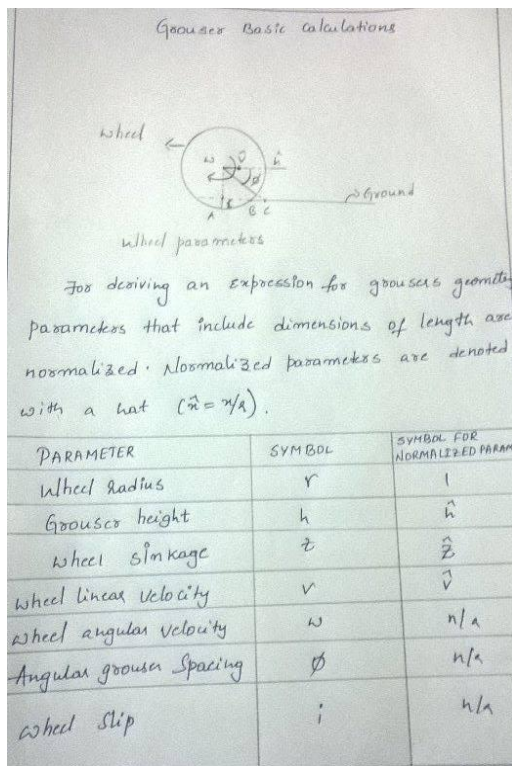 Grouser Basic Calculations
wheel
ω O ĥ
φ
Ground
A B C
Wheel parameters
For deriving an expression for grousers geometry
parameters that include dimensions of length are
normalized. Normalized parameters are denoted
with a hat (x̂ = x/r).
PARAMETER SYMBOL SYMBOL FOR
NORMALIZED PARAM
Wheel radius r 1
Grouser height h ĥ
wheel sinkage z ẑ
wheel linear velocity v v̂
wheel angular velocity ω n/a
Angular grouser Spacing φ n/a
wheel slip i n/a